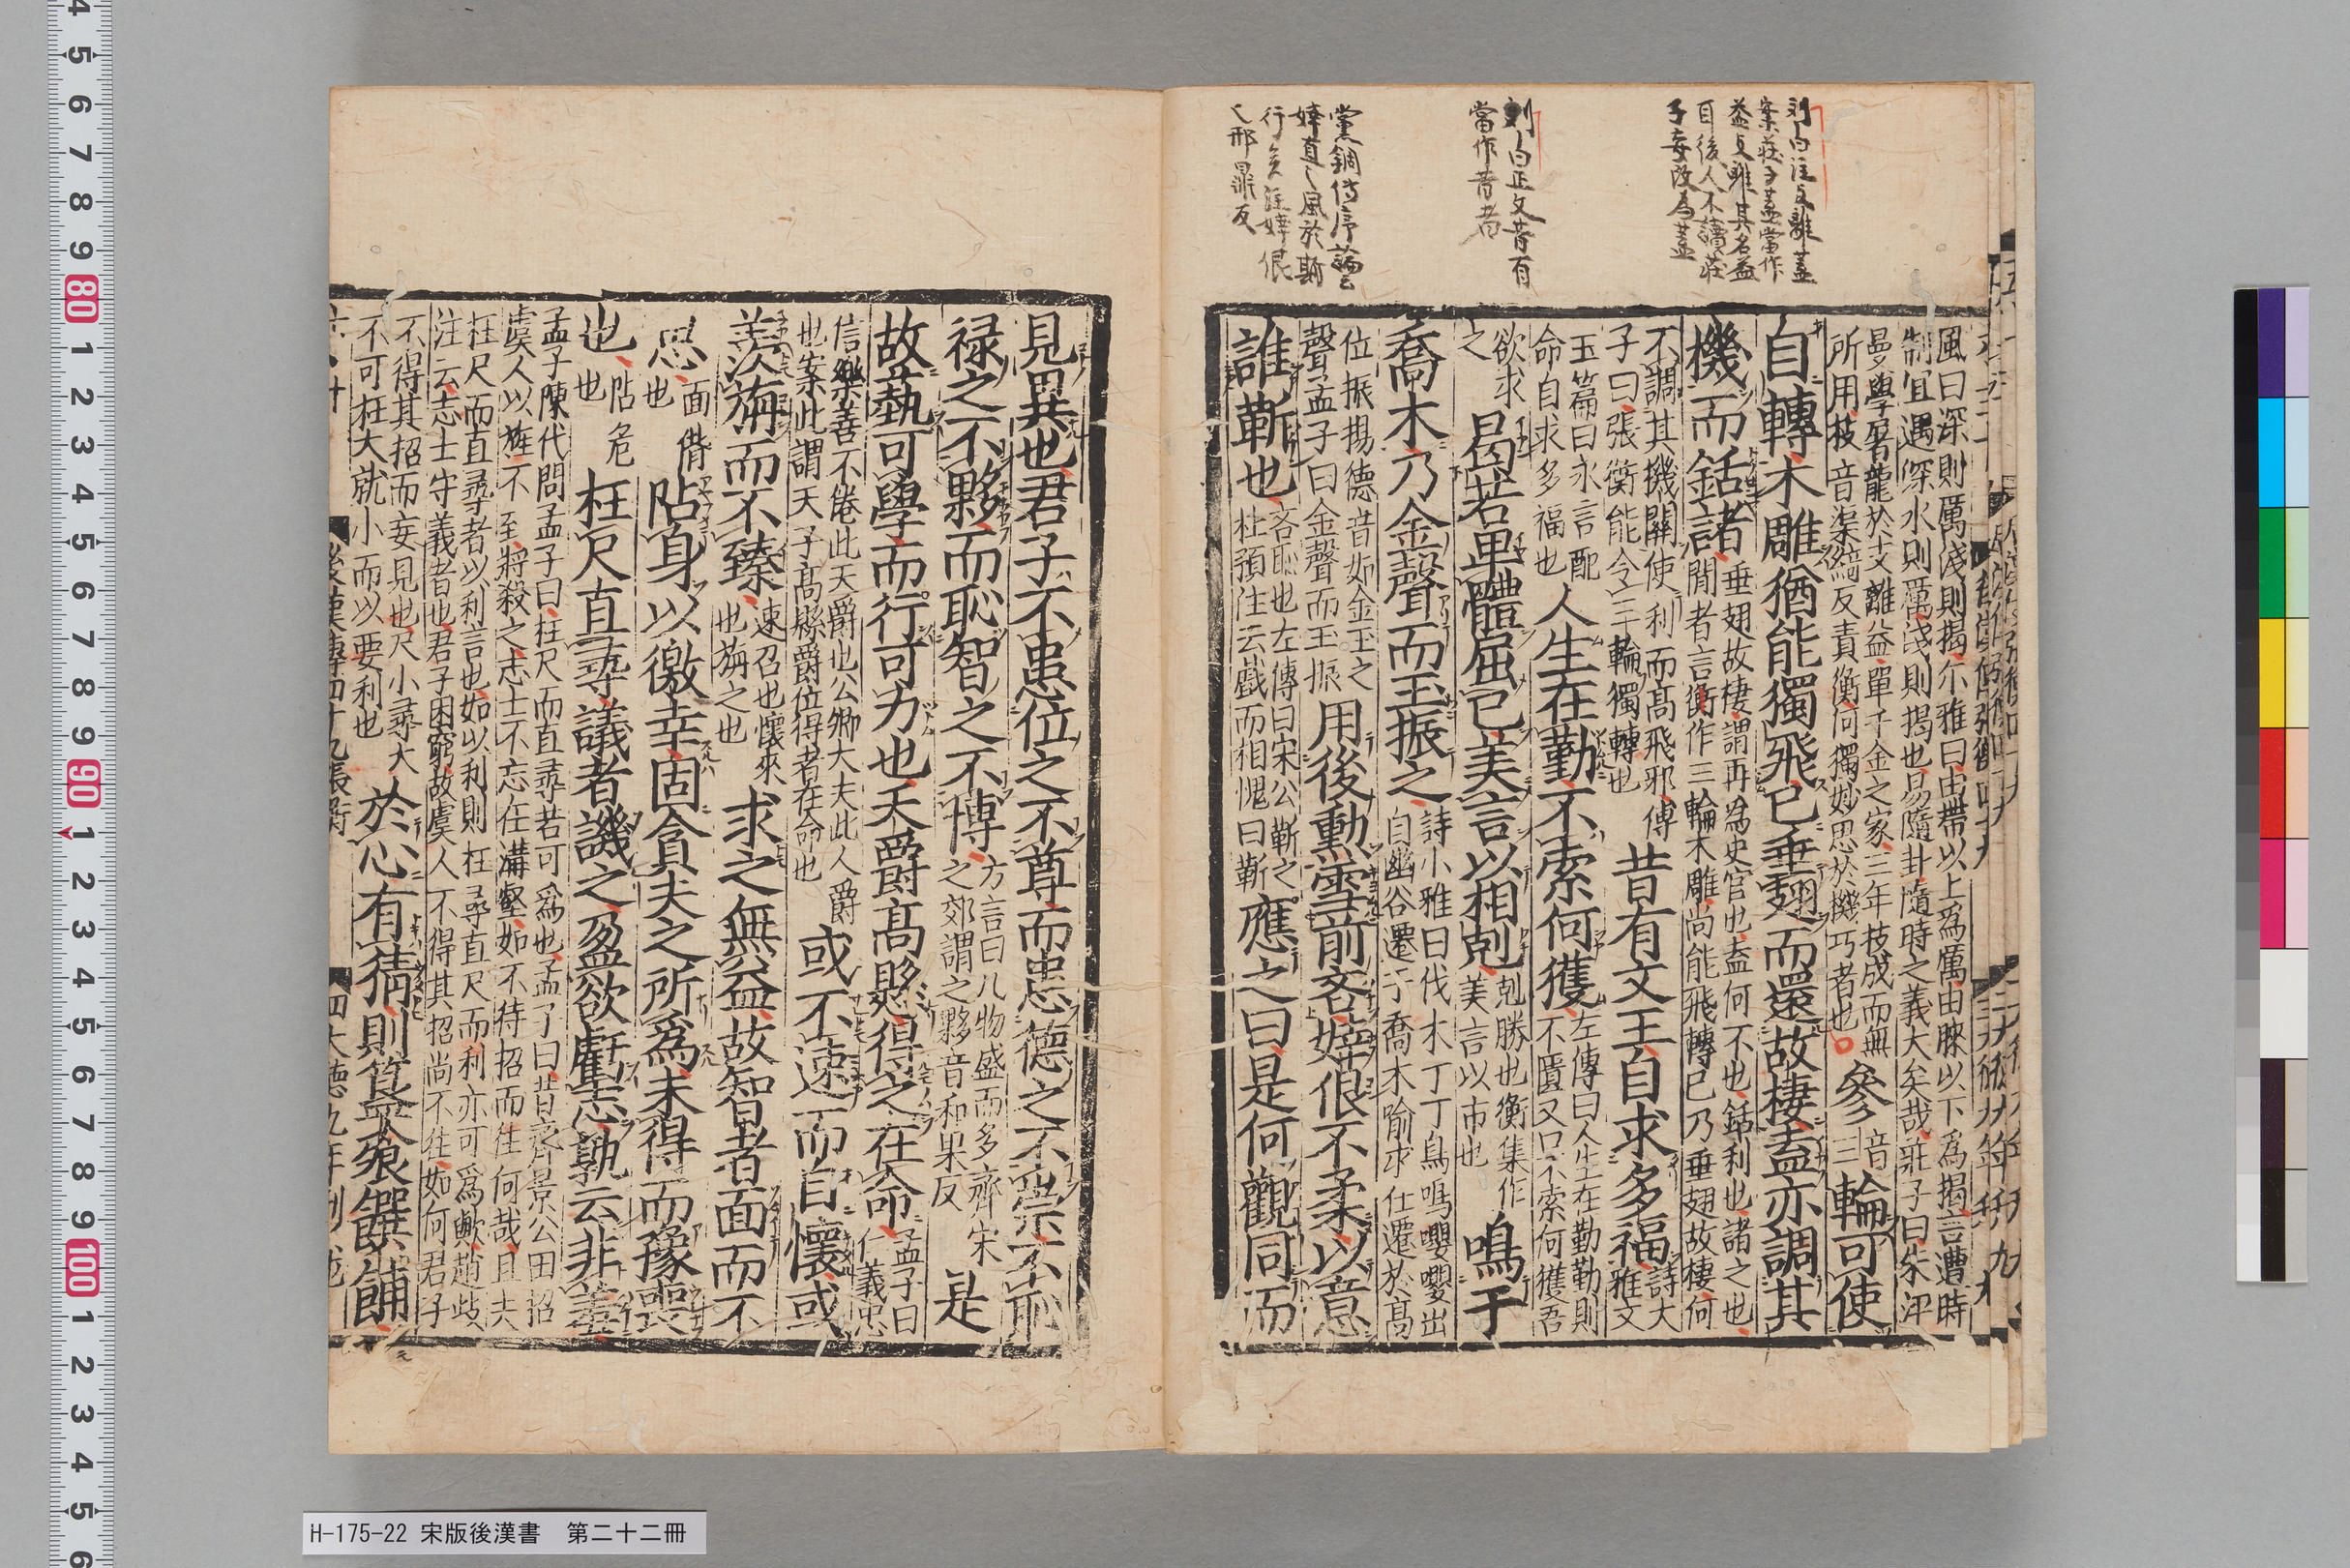 風曰深則厲淺則揭尓雅曰由帶以上爲厲由膝以下爲揭言遭時
制宜遇深水則厲淺則揭也易隨卦隨時之義大矣哉莊子曰朱泙
曼學屠龍於支離益單千金之家三年技成而無
所用技音渠綺反責衡何獨妙思於機巧者也
參
音
三
輪可使
自轉木雕猶能獨飛已垂翅而還故棲盍亦調其
機而銛諸
垂翅故棲謂再爲史官也盍何不也銛利也諸之也
閒者言衡作三輪木雕尚能飛轉已乃垂翅故棲何
不調其機關使利而高飛邪傅
子曰張衡能令三輪獨轉也
昔有文王自求多福
詩大
雅文
玉篇曰永言配
命自求多福也
人生在勤不索何獲
左傳曰人生在勤勤則
不匱又曰不索何獲吾
欲求
之
曷若卑體屈己美言以相剋
剋勝也衡集作
美言以市也
鳴于
喬木乃金聲而玉振之
詩小雅曰伐木丁丁鳥鳴嚶嚶出
自幽谷遷于喬木喻求仕遷於高
位振揚德音如金玉之
聲孟子曰金聲而玉振
用後勳雪前吝婞佷不柔以意
誰靳也
吝恥也左傳曰宋公靳之
杜預注云戲而相愧曰靳
應之曰是何觀同而
見異也君子不患位之不尊而患德之不崇不恥
禄之不夥而恥智之不博
方言曰凡物盛而多齊宋
之郊謂之夥音和果反
是
故藝可學而行可力也天爵高懸得之在命
孟子曰
仁義忠
信樂善不倦此天爵也公卿大夫此人爵
也案此謂天子高縣爵位得者在命也
或不速而自懷或
羨旃而不臻
速召也懷來
也旃之也
求之無益故智者面而不
思
面偝
也
阽身以徼幸固貪夫之所爲未得而豫喪
也
阽危
也
枉尺直尋議者譏之盈欲虧志孰云非羞
孟子陳代問孟子曰枉尺而直尋若可爲也孟子曰昔齊景公田招
虞人以旌不至將殺之志士不忘在溝壑如不待招而往何哉且夫
枉尺而直尋者以利言也如以利則枉尋直尺而利亦可爲歟趙歧
注云志士守義者也君子困窮故虞人不得其招尚不往如何君子
不得其招而妄見也尺小尋大
不可枉大就小而以要利也
於心有猜則簋飧饌餔
後漢傳四十九張衡
四
大德九年刊
劉曰正文昔有
當作昔者
黨錮傳序論云
婞直之風於斯
行矣注婞佷
H-175-22 宋版後漢書 第二十二冊